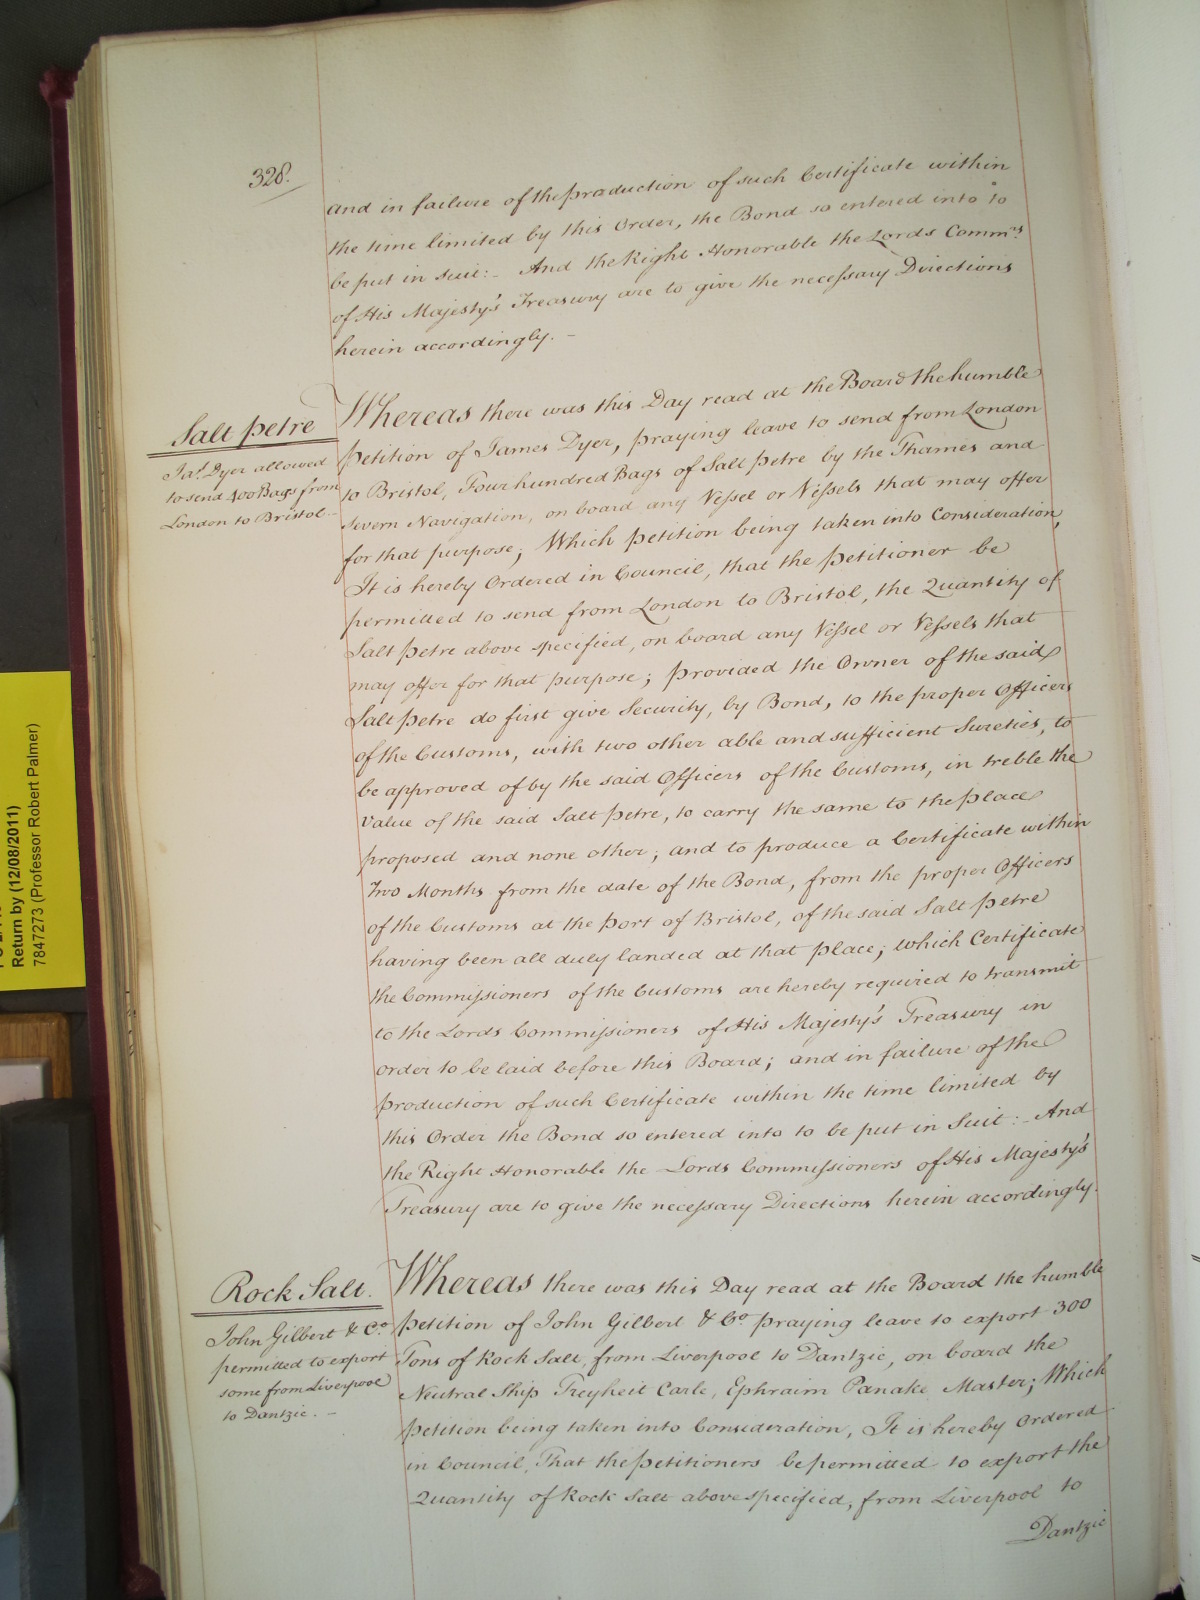 328.
and in failure of the production of such Certificate within
the time limited by this Order, the Bond so entered into to
be put in suit:- And the Right Honorable the Lords Commrs.
of His Majesty's Treasury are to give the necessary Directions
herein accordingly. -
Salt petre
Jas. Dyer allowed
to send 400 Bags from
London to Bristol -
Whereas there was this Day read at the Board the humble
petition of James Dyer, praying leave to send from London
to Bristol, Four hundred Bags of Salt petre by the Thames and
severn Navigation, on board any Vessel or Vessels that may offer
for that purpose; Which petition being taken into Consideration,
It is hereby Ordered in Council, that the petitioner be
permitted to send from London to Bristol, the Quantity of
Salt petre above specified, on board any Vessel or Vessels that
may offer for that purpose; provided the Owner of the said
Salt petre do first give Security, by Bond, to the proper Officers
of the Customs, with two other able and sufficient Sureties, to
be approved of by the said Officers of the Customs, in treble the
Value of the said Salt petre, to carry the same to the place
proposed and none other; and to produce a Certificate within
Two Months from the date of the Bond, from the proper Officers
of the Customs at the port of Bristol, of the said Salt petre
having been all duly landed at that place; which Certificate
the Commissioners of the Customs are hereby required to transmit
to the Lords Commissioners of His Majesty's Treasury in
order to be laid before this Board; and in failure of the
production of such Certificate within the time limited by
this Order the Bond so entered into to be put in Suit:- And
the Right Honorable the Lords Commissioners of His Majesty's
Treasury are to give the necessary Directions herein accordingly.
Rock Salt.
John Gilbert & Co.
permitted to export
some from Liverpool
to Dantzic. -
Whereas there was this Day read at the Board the humble
petition of John Gilbert & Co. praying leave to export 300
Tons of Rock Salt, from Liverpool to Dantzic, on board the
Neutral Ship Freyheit Carle, Ephraim Panake Master; Which
petition being taken into Consideration, It is hereby Ordered
in Council, That the petitioners be permitted to export the
Quantity of Rock Salt above specified, from Liverpool to
Dantzic
Return by (12/08/2011)
7847273 (Professor Robert Palmer)